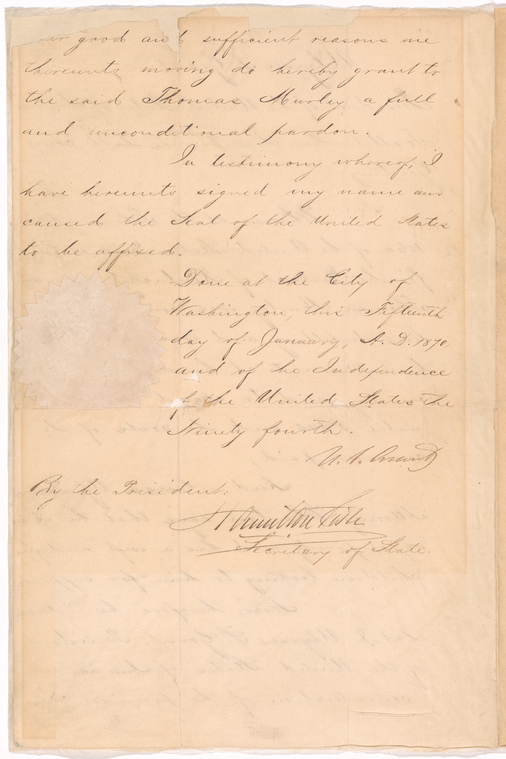 good and sufficient reasons me
thereunto moving do hereby grant to
the said Thomas Murley a full
and unconditional pardon.
In testimony whereof, I
have hereunto signed my name and
caused the Seal of the United States
to be affixed.
Done at the City of
Washington, this Fifteenth
day of January, A. D. 1870
and of the Independence
of the United States the
Ninety fourth.
U. S. Grant
By the President:
Hamilton Fish
Secretary of State.